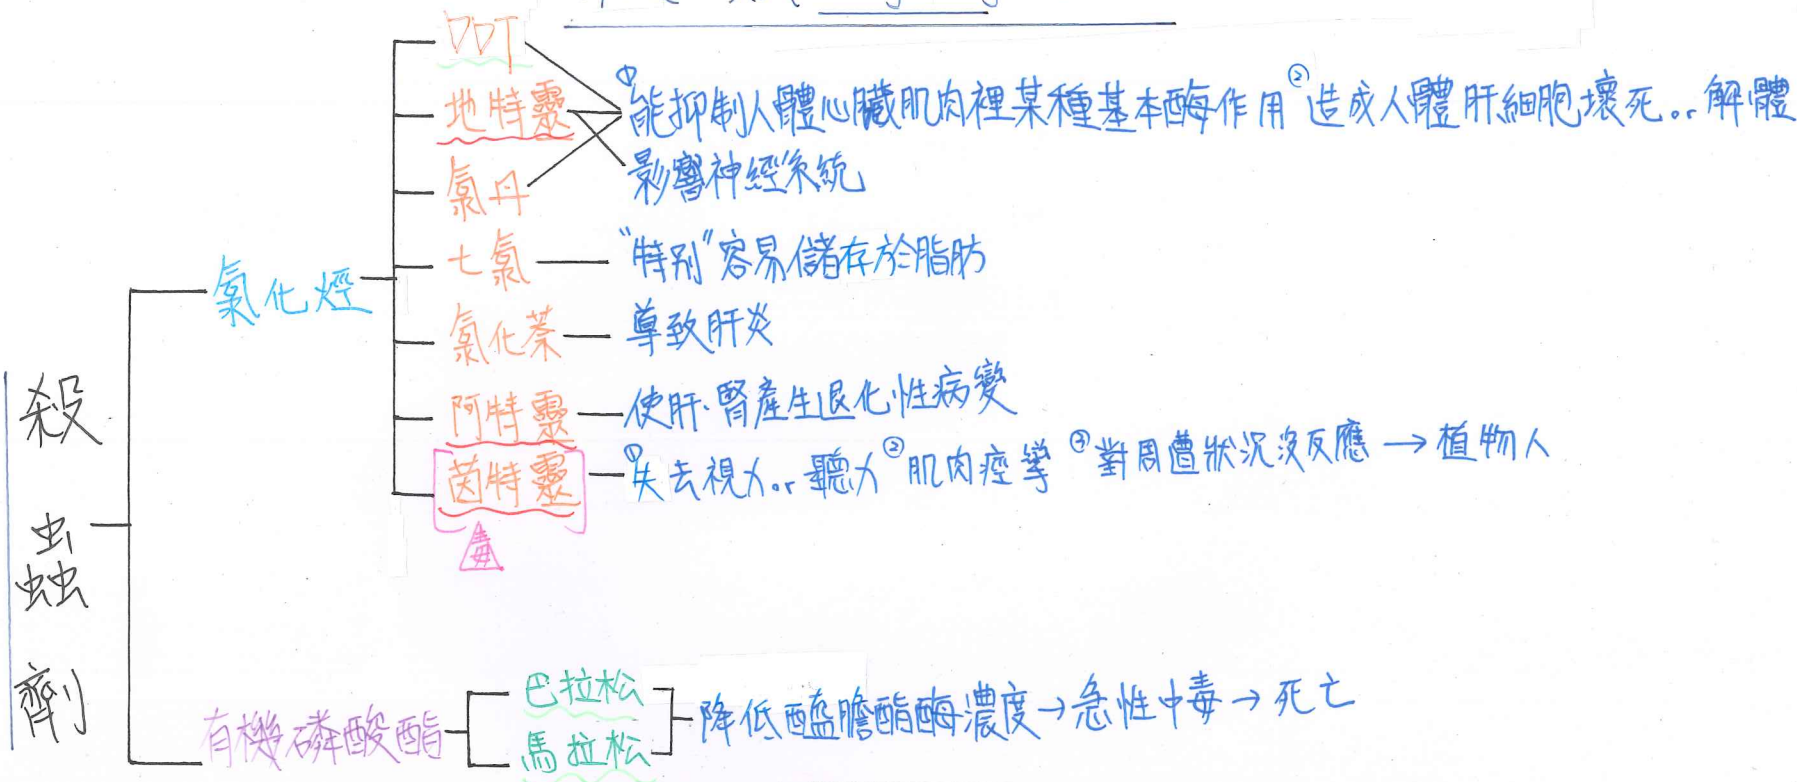 DDT
地特靈
氯丹
①能抑制人體心臟肌肉裡某種基本酶作用 ②造成人體肝細胞壞死or解體
影響神經系統
七氯 "特別"容易儲存於脂肪
氯化烴
氯化萘 導致肝炎
阿特靈 使肝、腎產生退化性病變
茵特靈 ①失去視力or聽力 ②肌肉痙攣 ③對周遭狀況沒反應→植物人
毒
殺蟲劑
有機磷酸酯
巴拉松
馬拉松
降低醯膽酯酶濃度→急性中毒→死亡